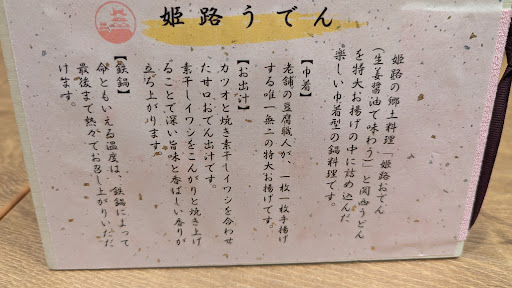 姫路うでん
姫路の郷土料理「姫路おでん
(生姜醤油で味わう)と関西うどん
を特大お揚げの中に詰め込んだ
楽しい巾着型の鍋料理です。
【巾着】
老舗の豆腐職人が、一枚一枚手揚げ
する唯一無二の特大お揚げです。
【お出汁】
カツオと焼き素干しイワシを合わせ
た甘口おでん出汁です。
素干しイワシをこんがりと焼き上げ
ることで深い旨味と香ばしい香りが
立ち上がります。
【鉄鍋】
命ともいえる温度は、鉄鍋によって
最後まで熱々でお召し上がりいただ
けます。